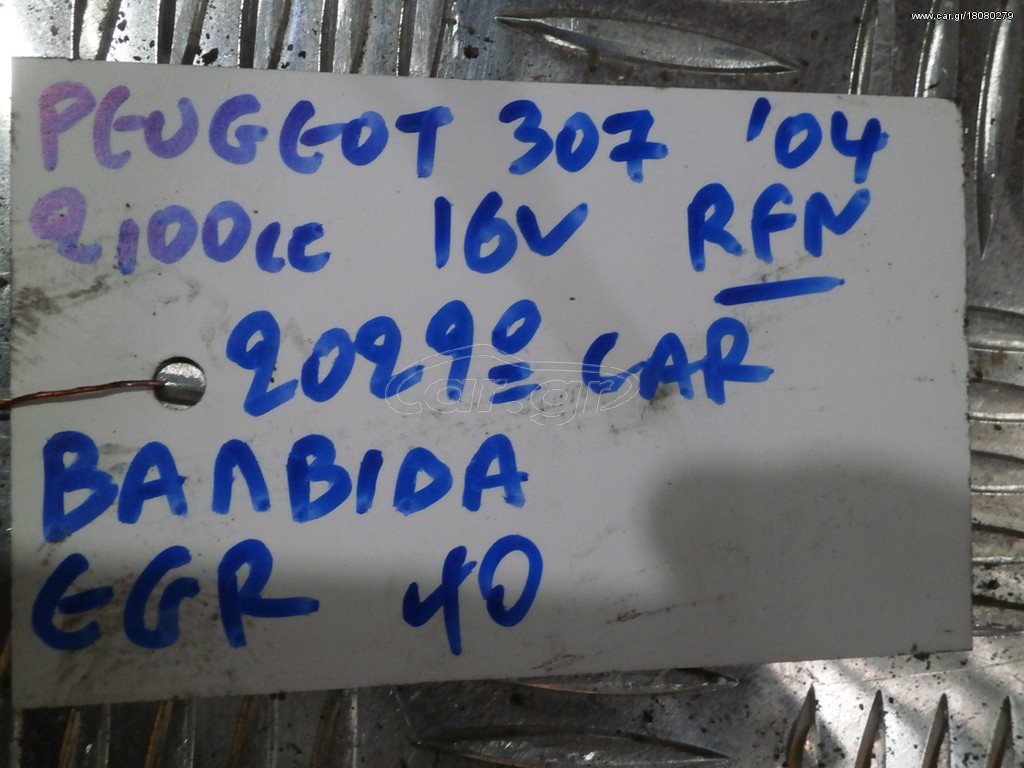 www.car.gr/18080279
PEUGEOT 307 '04
2,100cc 16V RFN
2029º CAR
car.gr
ΒΑΛΒΙΔΑ
EGR 40